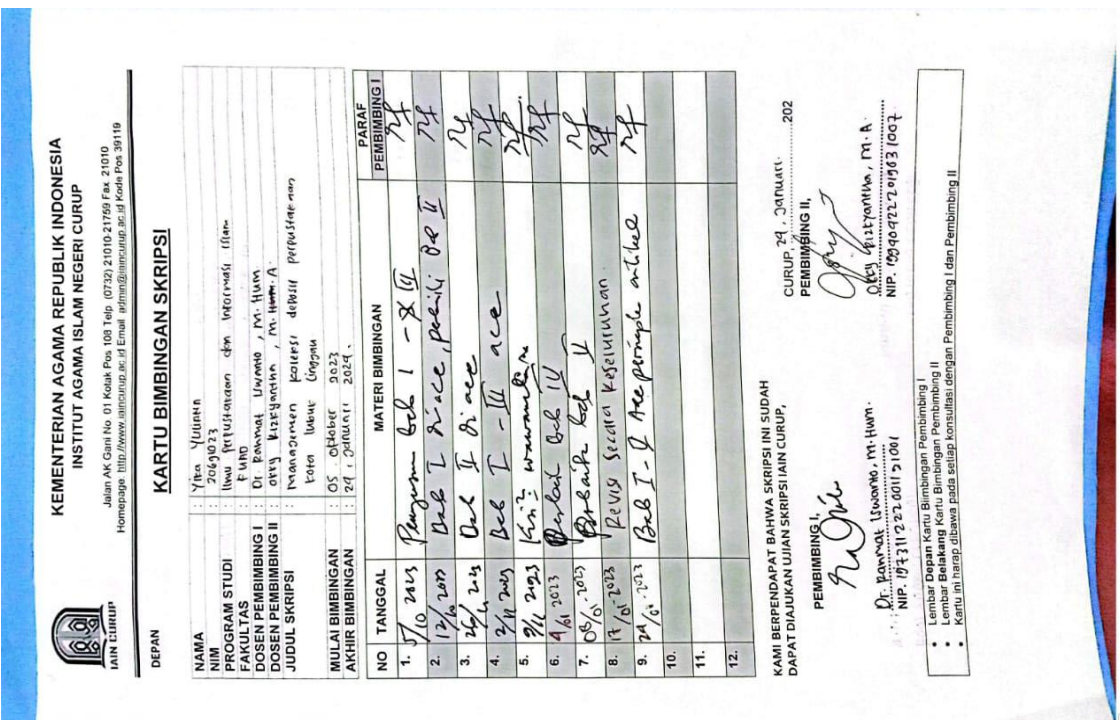 IAIN CURUP
KEMENTERIAN AGAMA REPUBLIK INDONESIA
INSTITUT AGAMA ISLAM NEGERI CURUP
Jalan AK Gani No. 01 Kotak Pos 108 Telp. (0732) 21010-21759 Fax. 21010
Homepage: http://www.iaincurup.ac.id Email: admin@iaincurup.ac.id Kode Pos 39119
DEPAN
KARTU BIMBINGAN SKRIPSI
NAMA : Yira Yuliana
NIM : 20691023
PROGRAM STUDI : Ilmu Perpustakaan dan Informasi Islam
FAKULTAS : FUAD
DOSEN PEMBIMBING I : Dr. Rahmat Iswanto, M.Hum
DOSEN PEMBIMBING II : Okky Rizkyantha, M.A.
JUDUL SKRIPSI : Manajemen koleksi deposit perpustakaan
kota lubuk linggau
MULAI BIMBINGAN : 05, oktober 2023
AKHIR BIMBINGAN : 24, januari 2024.
NO TANGGAL MATERI BIMBINGAN PARAF PEMBIMBING I
1. 5/10 2023 bab I - III
2. 12/10 2023 Bab I di acc, II
3. 26/ 2023 Bab II di acc
4. 2/11 2023 Bab I - III acc
5. 9/11 2023 wawancara
6. 4/01 2023 Bab IV
7. 08/01-2023 Bab V
8. 17/01-2023 Revisi Secara Keseluruhan
9. 24/01-2023 Bab I-V Acc artikel
10.
11.
12.
KAMI BERPENDAPAT BAHWA SKRIPSI INI SUDAH
DAPAT DIAJUKAN UJIAN SKRIPSI IAIN CURUP,
CURUP, 24, Januari. 202
PEMBIMBING I,
PEMBIMBING II,
Dr. Rahmat Iswanto, M.Hum.
NIP. 197311222001121001
Okky Rizkyantha, M.A.
NIP. 1990909222019031007
• Lembar Depan Kartu Biimbingan Pembimbing I
• Lembar Belakang Kartu Bimbingan Pembimbing II
• Kartu ini harap dibawa pada setiap konsultasi dengan Pembimbing I dan Pembimbing II